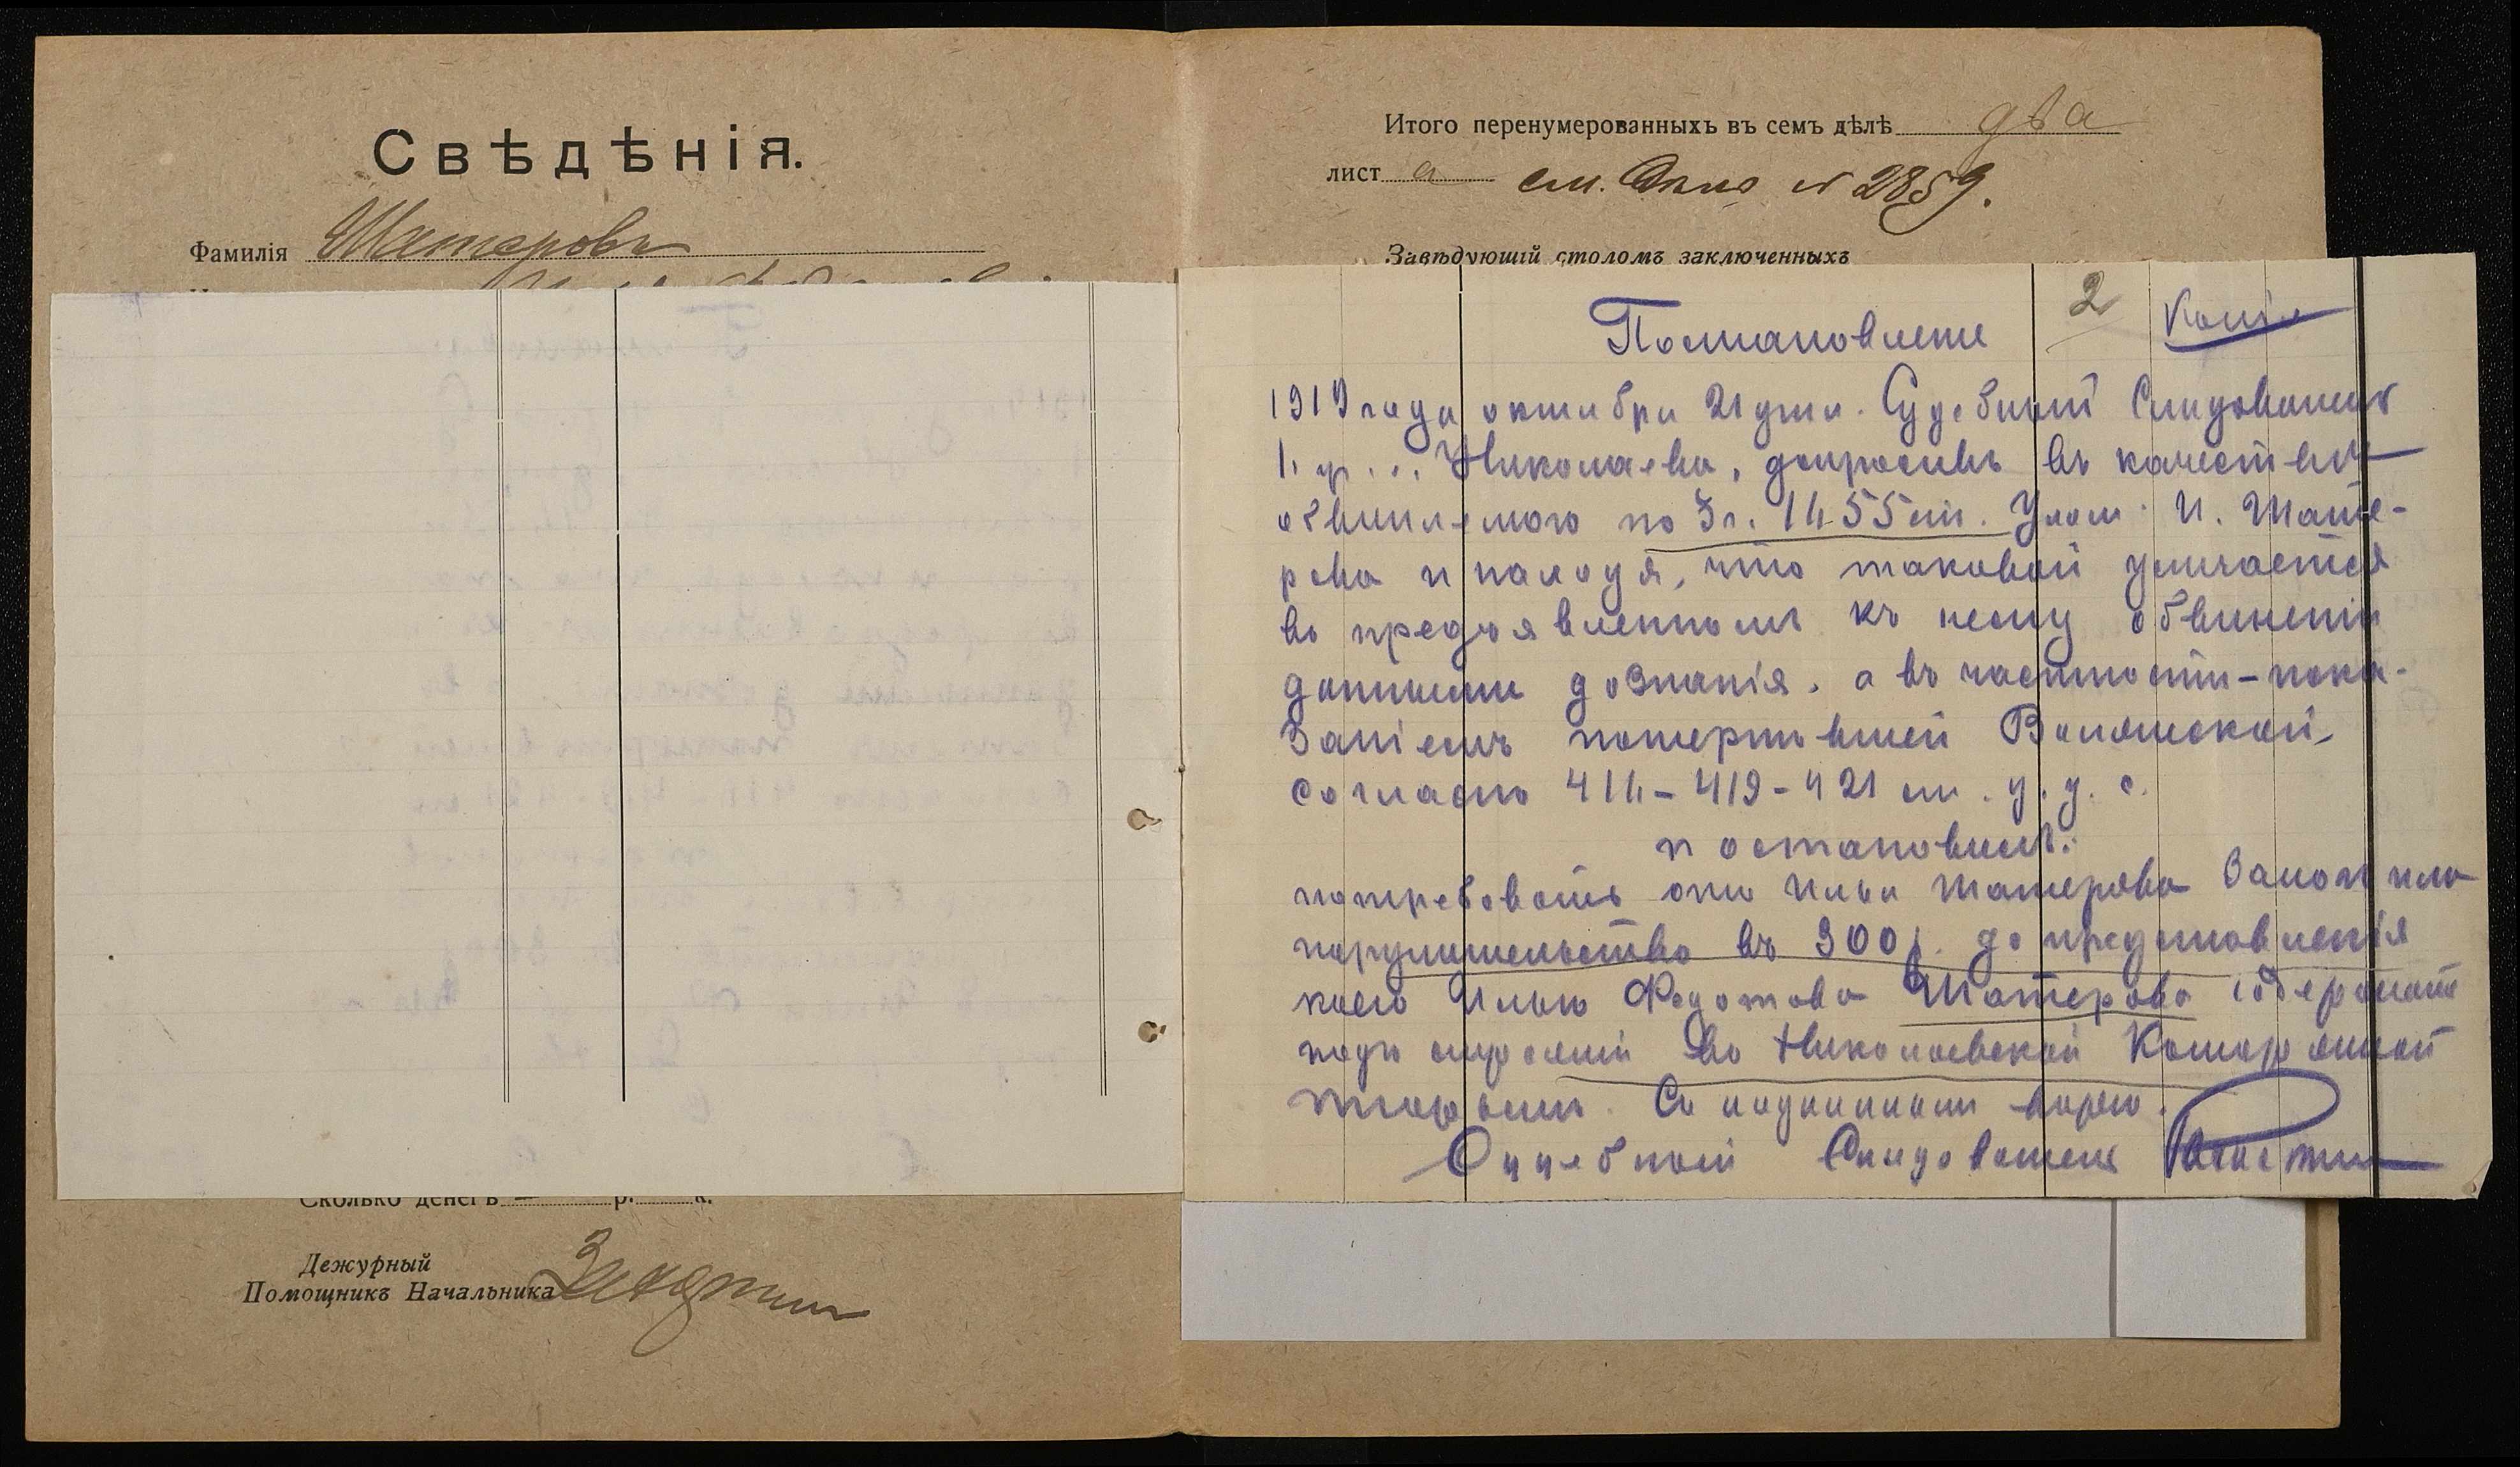 Свѣдѣнія.
Фамилія Шатеровъ
Сколько денегъ — р. к.
Дежурный
Помощникъ Начальника
Итого перенумерованныхъ въ семъ дѣлѣ два
лист а см. дело N 2859.
Завѣдующій столомъ заключенныхъ
2 Копія
Постановленіе
1919 года октября 21 дня. Судебный Слѣдователь
1. у. г. Николаева, допросивъ въ качествѣ
обвиняемаго по 3 ч. 1455 ст. Улож. И. Шате-
рова и находя, что таковой уличается
въ предъявленномъ къ нему обвиненіи
данными дознанія, а въ частности - пока-
заніемъ потерпѣвшей
согласно 414 - 419 - 421 ст. у. у. с.
постановилъ:
потребовать отъ Ильи Шатерова залогъ или
поручительство въ 300 р. до представленія
коего Илью Федотова Шатерова содержать
подъ стражей въ Николаевской Каторжной
тюрьмѣ. Съ подлиннымъ вѣрно.
Судебный Слѣдователь